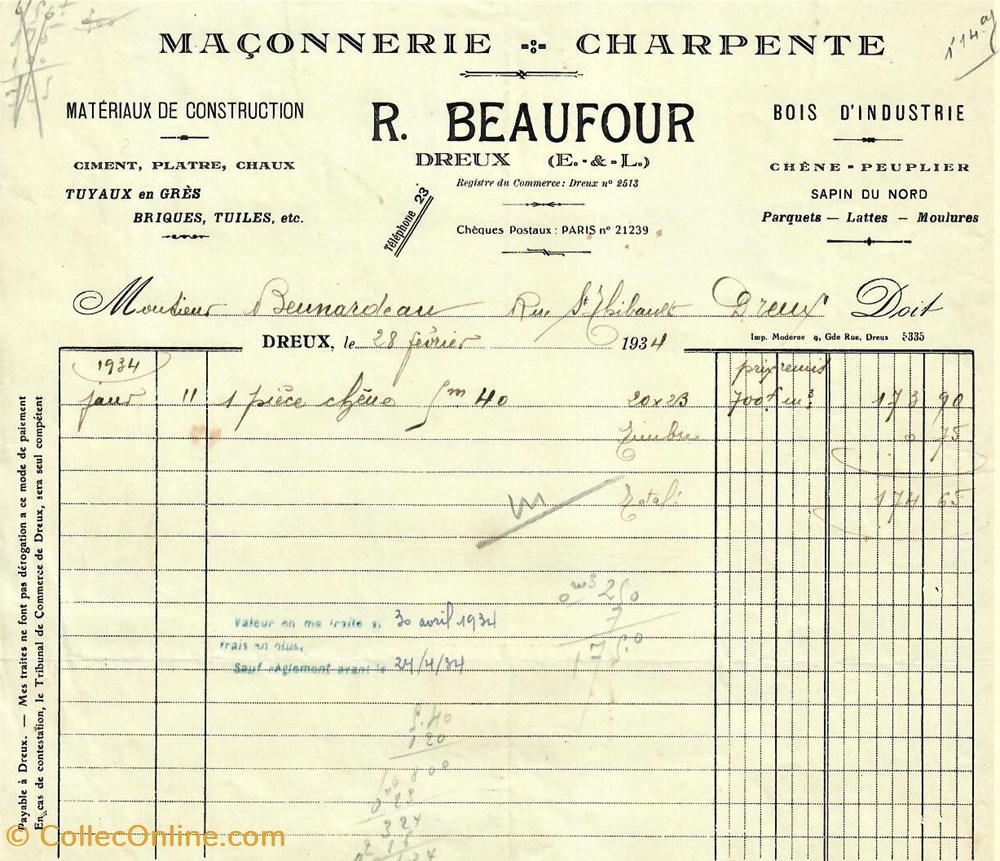 MAÇONNERIE -:- CHARPENTE
1174
MATÉRIAUX DE CONSTRUCTION
CIMENT, PLATRE, CHAUX
TUYAUX en GRÈS
BRIQUES, TUILES, etc.
R. BEAUFOUR
DREUX (E.-&-L.)
Registre du Commerce : Dreux nº 2513
Téléphone 23
Chèques Postaux : PARIS nº 21239
BOIS D'INDUSTRIE
CHÊNE - PEUPLIER
SAPIN DU NORD
Parquets — Lattes — Moulures
Monsieur Bennardeau Rue St Thibault Dreux Doit
DREUX, le 28 février 1934
Imp. Moderne 9, Gde Rue, Dreux 5335
1934
prix remis
janv " 1 pièce chêne 5m 40 20x23 700f m3 173 90
Timbre 0 75
Total: 174 65
m3
0 250
7
175.0
Valeur en ma traite a, 30 avril 1934
frais en plus,
Sauf règlement avant le 24/4/34
5.40
120
10 800
0 23
324
216
Payable à Dreux. — Mes traites ne font pas dérogation a ce mode de paiement
En cas de contestation, le Tribunal de Commerce de Dreux, sera seul compétent
© CollecOnline.com